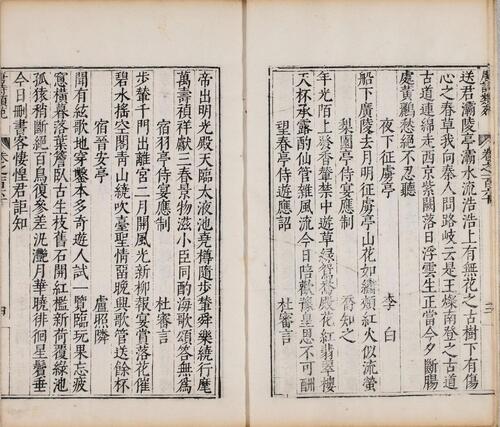 送君灞陵亭灞水流浩浩上有無花之古樹下有傷
心之春草我向秦人問路岐云是王燦南登之古道
古道連綿走西京紫闕落日浮雲生正當今夕斷腸
處黃鸝愁絕不忍聽
夜下征虜亭
李白
船下廣陵去月明征虜亭山花如繡頰紅火似流螢
梨園亭侍宴應制
喬知之
年光陌上發香輦禁中遊草綠鴛鴦殿花紅翡翠樓
天杯承露酌仙管雜風流今日陪歡豫皇恩不可酬
望春亭侍遊應詔
杜審言
帝出明光殿天臨太液池堯樽隨步輦舜樂繞行麾
萬壽禎祥獻三春景物滋小臣同酌海歌頌答無為
宿羽亭侍宴應制
杜審言
步輦千門出離宮二月開風光新柳報宴賞落花催
碧水搖空閣青山繞吹臺聖情留晚興歌管送餘杯
宿晉安亭
盧照隣
聞有絃歌地穿鑿本多奇遊人試一覽臨玩果忘疲
窻橫暮落葉簷臥古生枝舊石開紅檻新荷覆綠池
孤猿稍斷絕百鳥復參差泛灔月華曉徘徊星鬢垂
今日刪書客悽惶君詎知
三
四